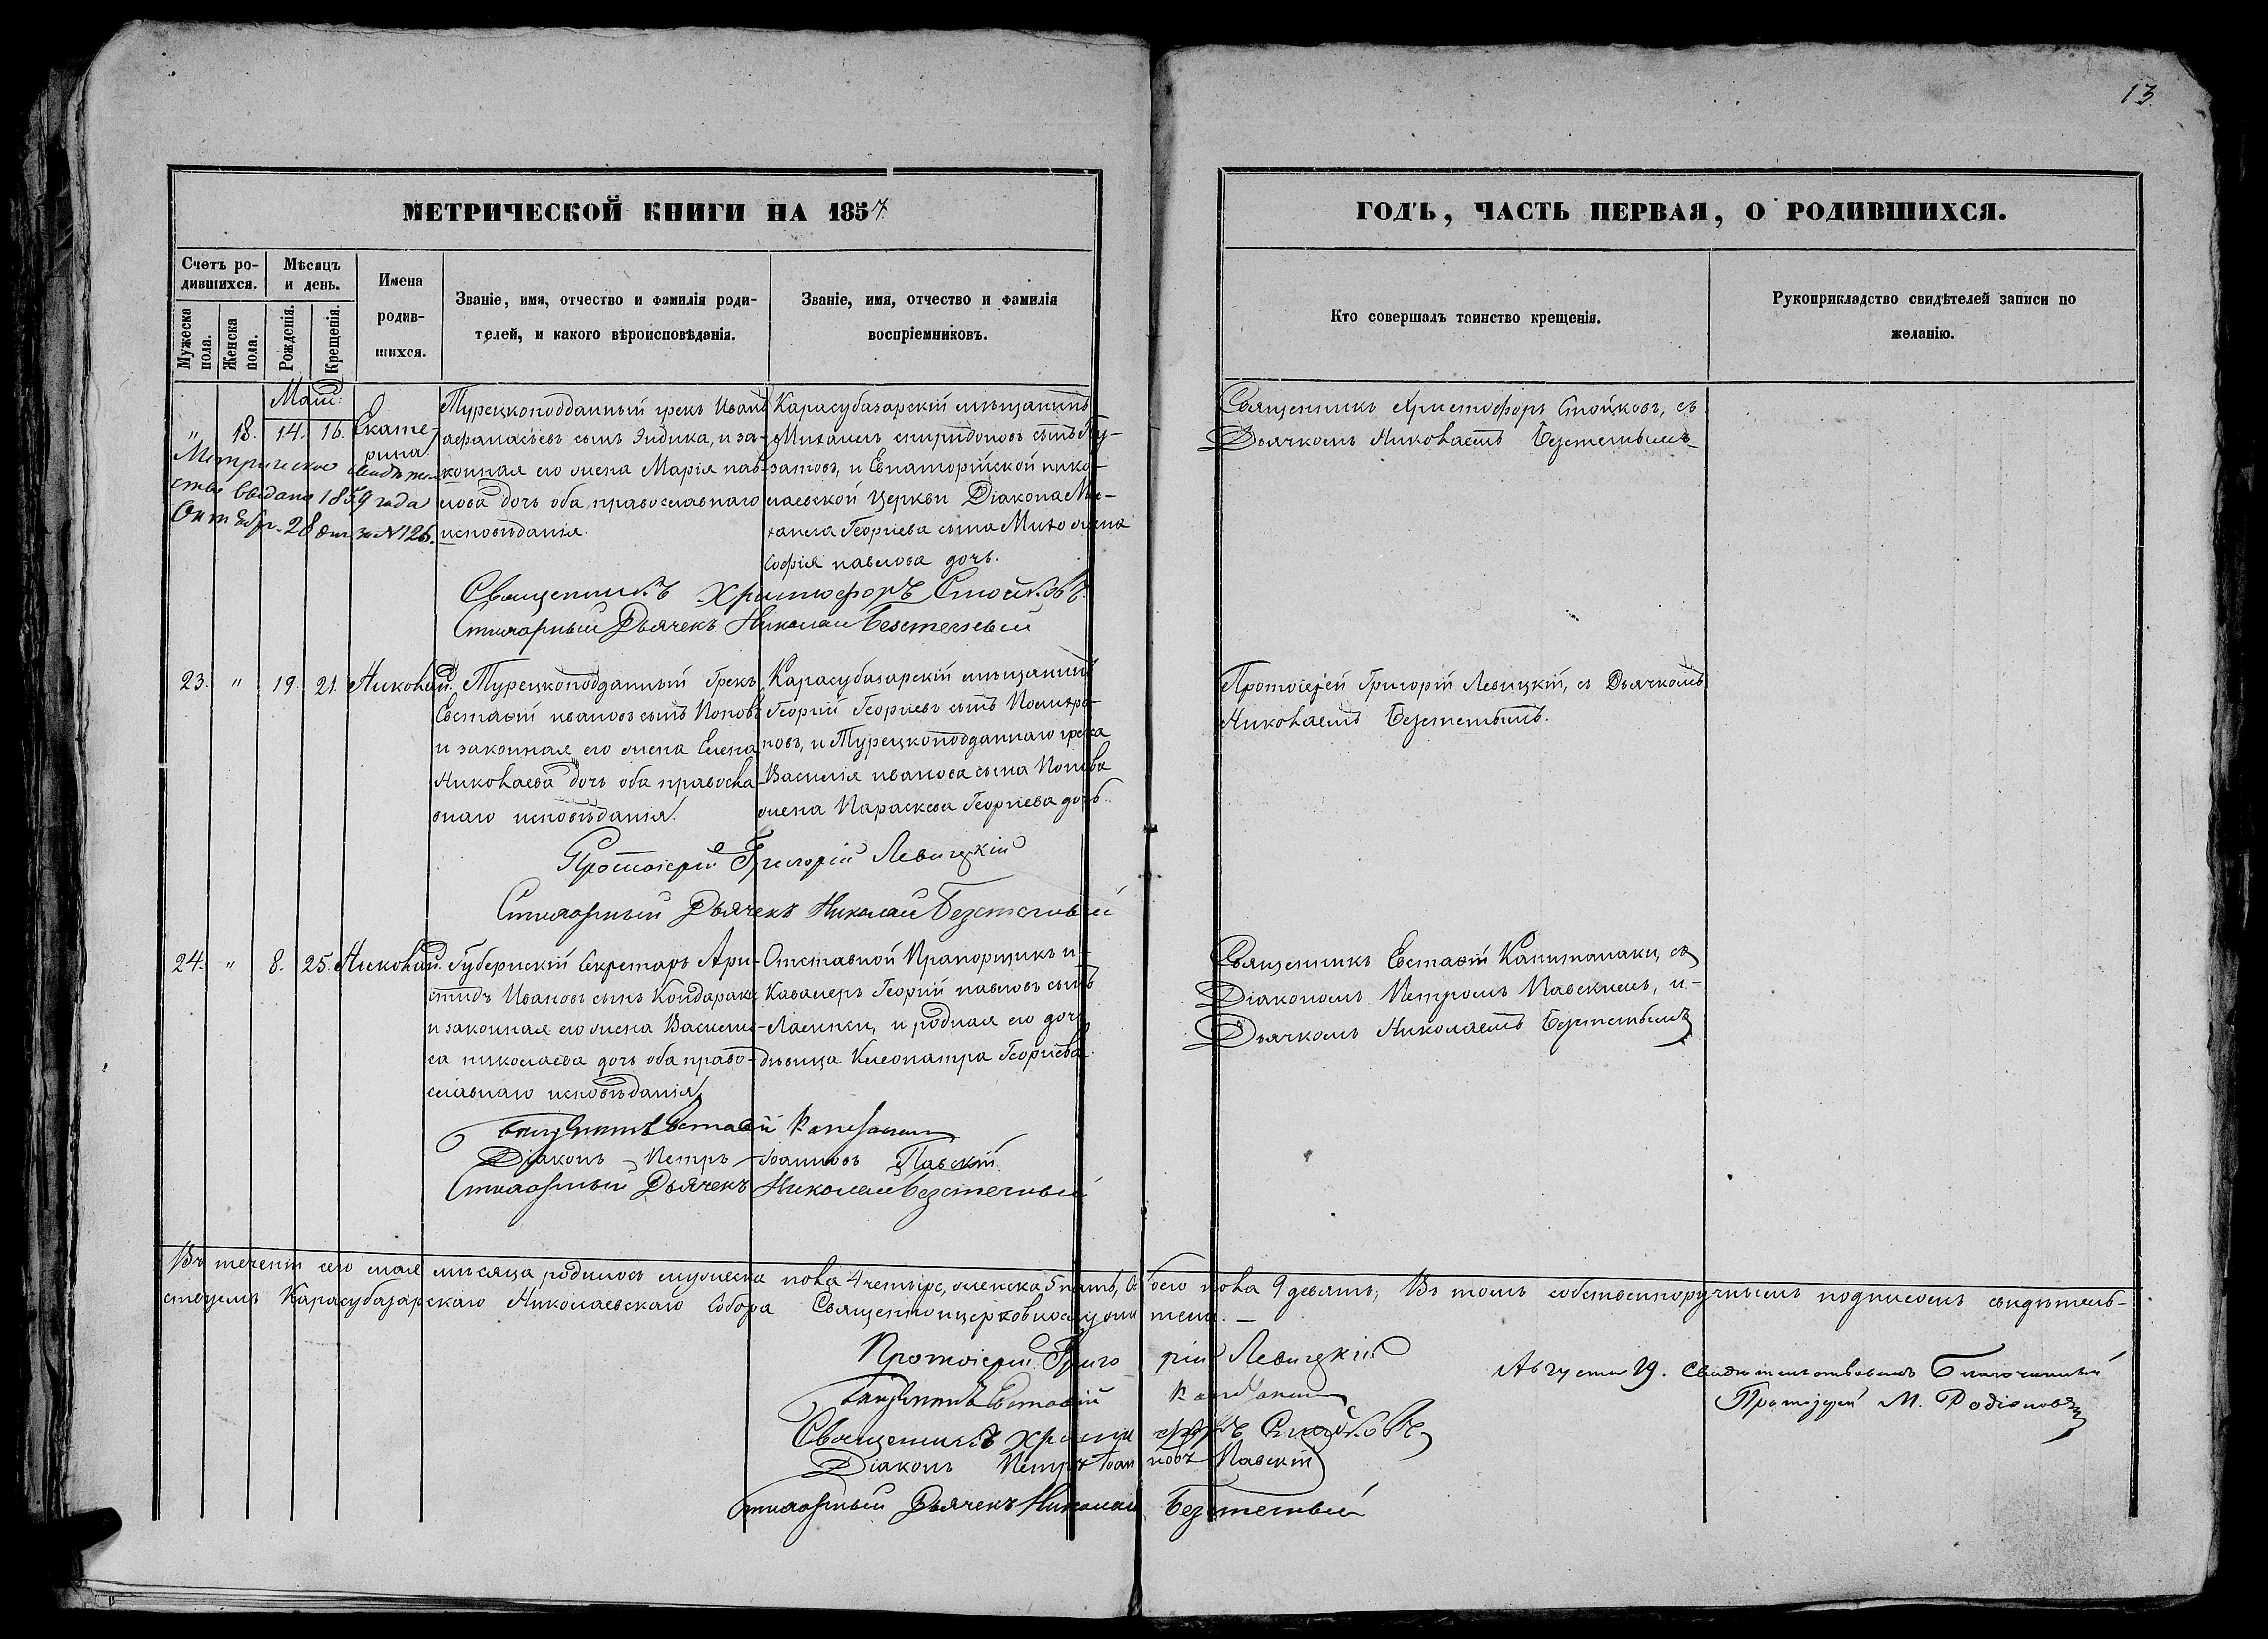 13.
МЕТРИЧЕСКОЙ КНИГИ НА 1857
ГОДЪ, ЧАСТЬ ПЕРВАЯ, О РОДИВШИХСЯ.
Счетъ ро-
дившихся.
Мѣсяцъ
и день.
Имена
родив-
шихся.
Званіе, имя, отчество и фамилія роди-
телей, и какого вѣроисповѣданія.
Званіе, имя, отчество и фамилія
воспріемниковъ.
Кто совершалъ таинство крещенія.
Рукоприкладство свидѣтелей записи по
желанію.
Мужеска
пола.
Женска
пола.
Рожденія.
Крещенія.
Маій.
" 18. 14. 16. Екате-
рина
Метрическое свидѣтель
ство выдано 1859 года
Октября 28 дня за № 126.
Турецкоподданный грекъ Иванъ
афанасіевъ сынъ Эндика, и за-
конная его жена Марія пав-
лова дочь оба православнаго
исповѣданія.
Карасубазарскій мѣщанинъ
Михаилъ спиридоновъ сынъ
затовъ, и Евпаторійской нико-
лаевской Церкви Діакона Ми-
хаила Георгіева сына жена
Софія павлова дочь.
Священникъ Христофоръ Стойковъ, съ
Дьячкомъ Николаемъ Безстепымъ
Священникъ Христофоръ Стойковъ.
Стихарный Дьячекъ Николай Безстепный
23. " 19. 21. Николай.
Турецкоподданный Грекъ
Евстафій ивановъ сынъ Поповъ
и законная его жена Елена
Николаева дочь оба правосла
внаго исповѣданія.
Карасубазарскій мѣщанинъ
Георгій Георгіевъ сынъ
новъ, и Турецкоподданнаго грека
Василія иванова сына Попова
жена Параскева Георгіева дочь.
Протоіерей Григорій Левицкій, съ Дьячкомъ
Николаемъ Безстепымъ.
Протоіерей Григорій Левицкій
Стихарный Дьячекъ Николай Безстепный
24. " 8. 25. Николай.
Губернскій Секретарь Ари-
стидъ Ивановъ сынъ Кондараки
и законная его жена Васили-
са николаева дочь оба право-
славнаго исповѣданія
Отставной Прапорщикъ и
Кавалеръ Георгій павловъ сынъ
и родная его дочь
дѣвица Клеопатра Георгіева.
Священникъ Евстафій Капитанаки, съ
Діакономъ Петромъ Павскимъ, и-
Дьячкомъ Николаемъ Безстепымъ
Священникъ Евстафій
Діаконъ Петръ Іоанновъ Павскій.
Стихарный Дьячекъ Николай Безстепный
Въ теченіи сего мая мѣсяца родилось мужеска пола 4 четыре, женска, 5 пять, обоего пола 9 девять; Въ томъ собственноручнымъ подписомъ свидѣтель-
ствуемъ Карасубазарскаго Николаевскаго Собора Священноцерковнослужители. —
Протоіерей Григорій Левицкій
Священникъ Евстафій
Священникъ Христофоръ Стойковъ
Діаконъ Петръ Іоанновъ Павскій
Стихарный Дьячекъ Николай Безстепный
Августа 19. Свидѣтельствовалъ Благочинный
Протоіерей М. Родіоновъ